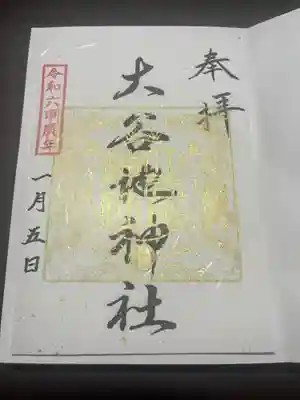 奉拝
大谷龍神社
令和六甲辰年
一月五日